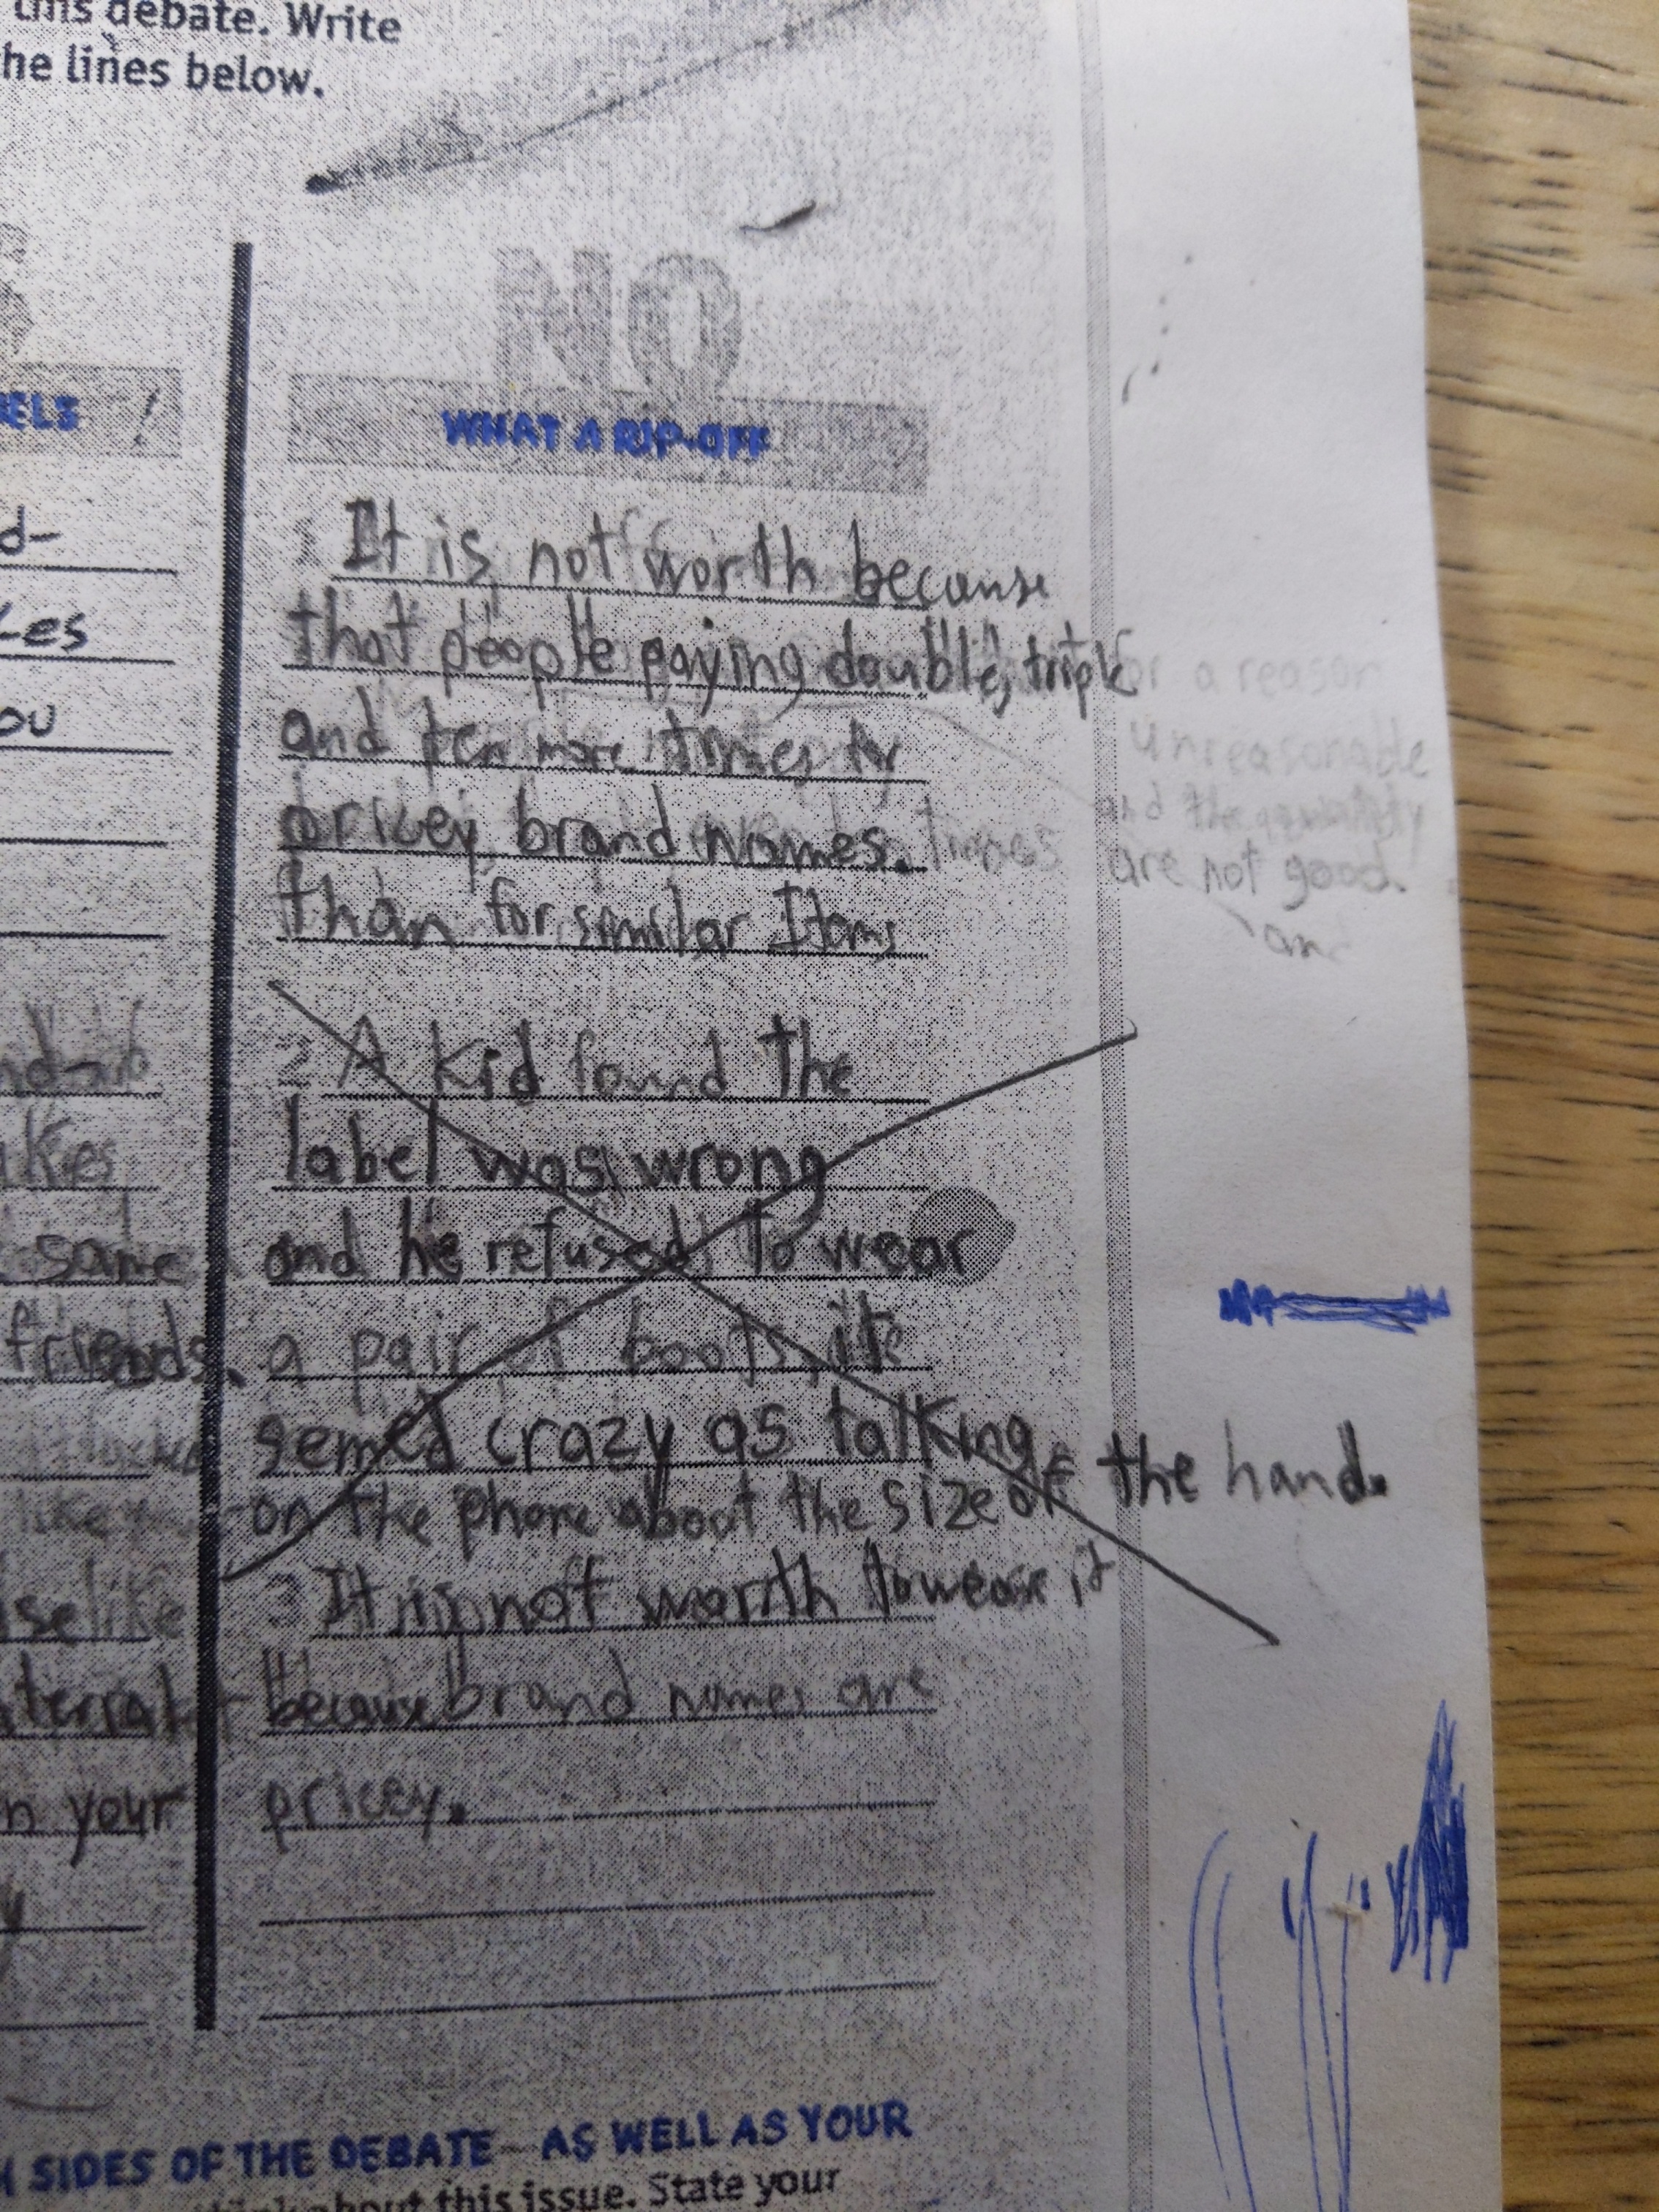 this debate. Write
he lines below.
NO
ELS !
WHAT A RIP-OFF
d-
kes
ou
1 It is not worth because
that people paying double, triple
and ten more times for
pricey brand names.
than for similar Items
or a reason
unreasonable
and the
are not good.
an
times
nd
akes
same
friends.
like
use like
n your
y
2 A kid found the
label was wrong
and he refused to wear
a pair of boots, its
semed crazy as talking
on the phone about the size of the hand.
3 It is not worth to wear it
because brand names are
pricey.
H SIDES OF THE DEBATE AS WELL AS YOUR
think about this issue. State your